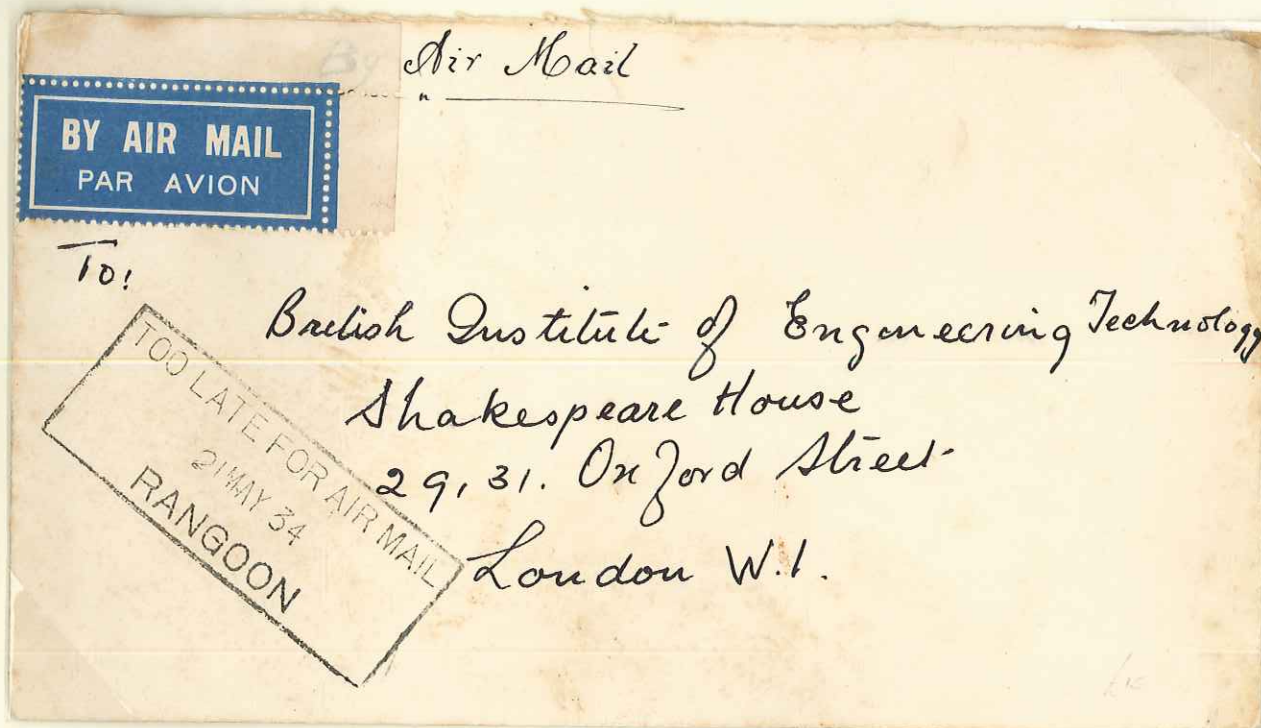 By Air Mail
"
BY AIR MAIL
PAR AVION
To!
British Institute of Engineering Technology
Shakespeare House
29, 31. Oxford Street
London W.1.
TOO LATE FOR AIR MAIL
21 MAY 34
RANGOON